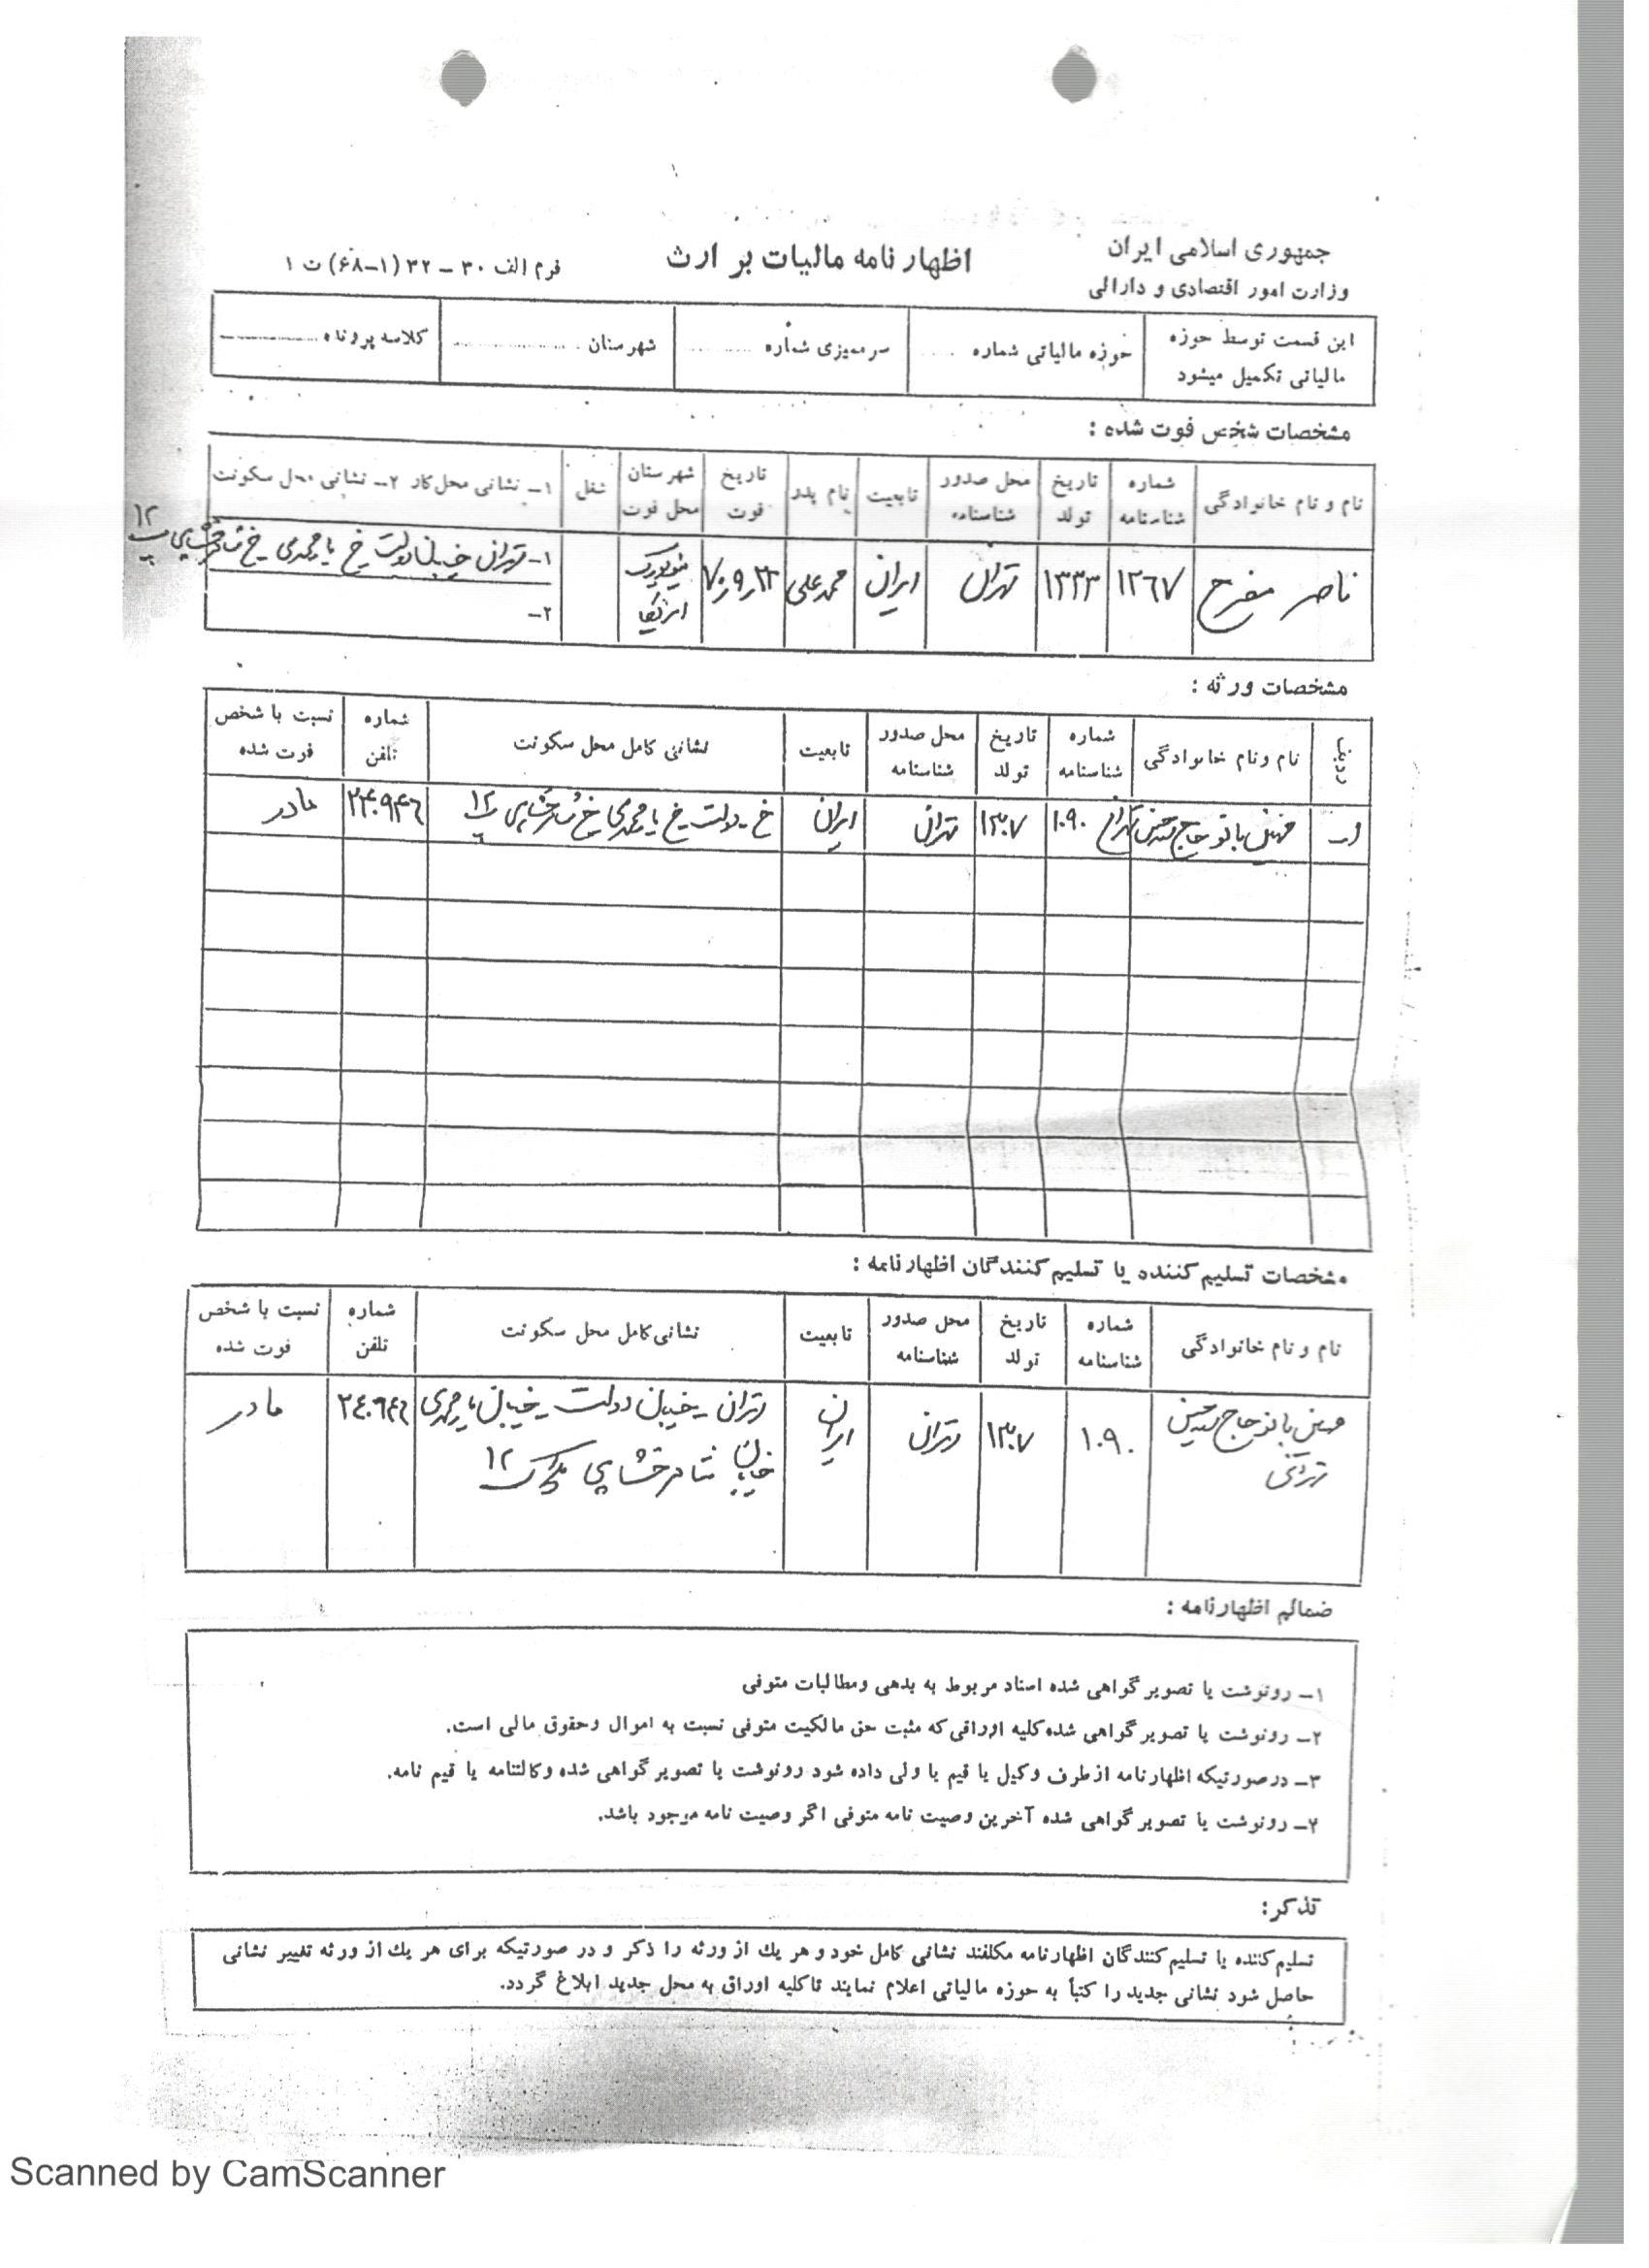 جمهوری اسلامی ایران
وزارت امور اقتصادی و دارائی
اظهار نامه مالیات بر ارث
فرم الف ۳۰ – ۳۲ (۱–۶۸) ت ۱
این قسمت توسط حوزه مالیاتی تکمیل میشود
حوزه مالیاتی شماره ....
سرممیزی شماره ........
شهرستان ................
کلاسه پرونده ............
مشخصات شخص فوت شده :
نام و نام خانوادگی | شماره شناسنامه | تاریخ تولد | محل صدور شناسنامه | تابعیت | نام پدر | تاریخ فوت | شهرستان محل فوت | شغل | ۱– نشانی محل کار ۲– نشانی محل سکونت
ناصر مفرح | ۱۲۶۷ | ۱۳۳۳ | تهران | ایران | محمدعلی | ۷۰٫۹٫۲۲ | نیویورک | ۱– تهران خیابان دولت خ یارمحمدی خ ۱۲
۲–
مشخصات ورثه :
ردیف | نام و نام خانوادگی | شماره شناسنامه | تاریخ تولد | محل صدور شناسنامه | تابعیت | نشانی کامل محل سکونت | شماره تلفن | نسبت با شخص فوت شده
۱– | مهین بانو حاج | ۱۰۹۰ | ۱۳۰۷ | تهران | ایران | خ دولت خ یارمحمدی خ ۱۲ | ۲۴۰۹۴۶ | مادر
مشخصات تسلیم کننده یا تسلیم کنندگان اظهارنامه :
نام و نام خانوادگی | شماره شناسنامه | تاریخ تولد | محل صدور شناسنامه | تابعیت | نشانی کامل محل سکونت | شماره تلفن | نسبت با شخص فوت شده
مهین بانو حاج | ۱۰۹۰ | ۱۳۰۷ | تهران | ایران | تهران – خیابان دولت – خیابان یارمحمدی | ۲۴۰۹۴۶ | مادر
خیابان پلاک ۱۲
ضمائم اظهارنامه :
۱– رونوشت یا تصویر گواهی شده اسناد مربوط به بدهی ومطالبات متوفی
۲– رونوشت یا تصویر گواهی شده کلیه اوراقی که مثبت حق مالکیت متوفی نسبت به اموال وحقوق مالی است.
۳– درصورتیکه اظهارنامه از طرف وکیل یا قیم یا ولی داده شود رونوشت یا تصویر گواهی شده وکالتنامه یا قیم نامه.
۴– رونوشت یا تصویر گواهی شده آخرین وصیت نامه متوفی اگر وصیت نامه موجود باشد.
تذکر:
تسلیم کننده یا تسلیم کنندگان اظهارنامه مکلفند نشانی کامل خود و هر یك از ورثه را ذکر و در صورتیکه برای هر یك از ورثه تغییر نشانی
حاصل شود نشانی جدید را کتباً به حوزه مالیاتی اعلام نمایند تاکلیه اوراق به محل جدید ابلاغ گردد.
Scanned by CamScanner